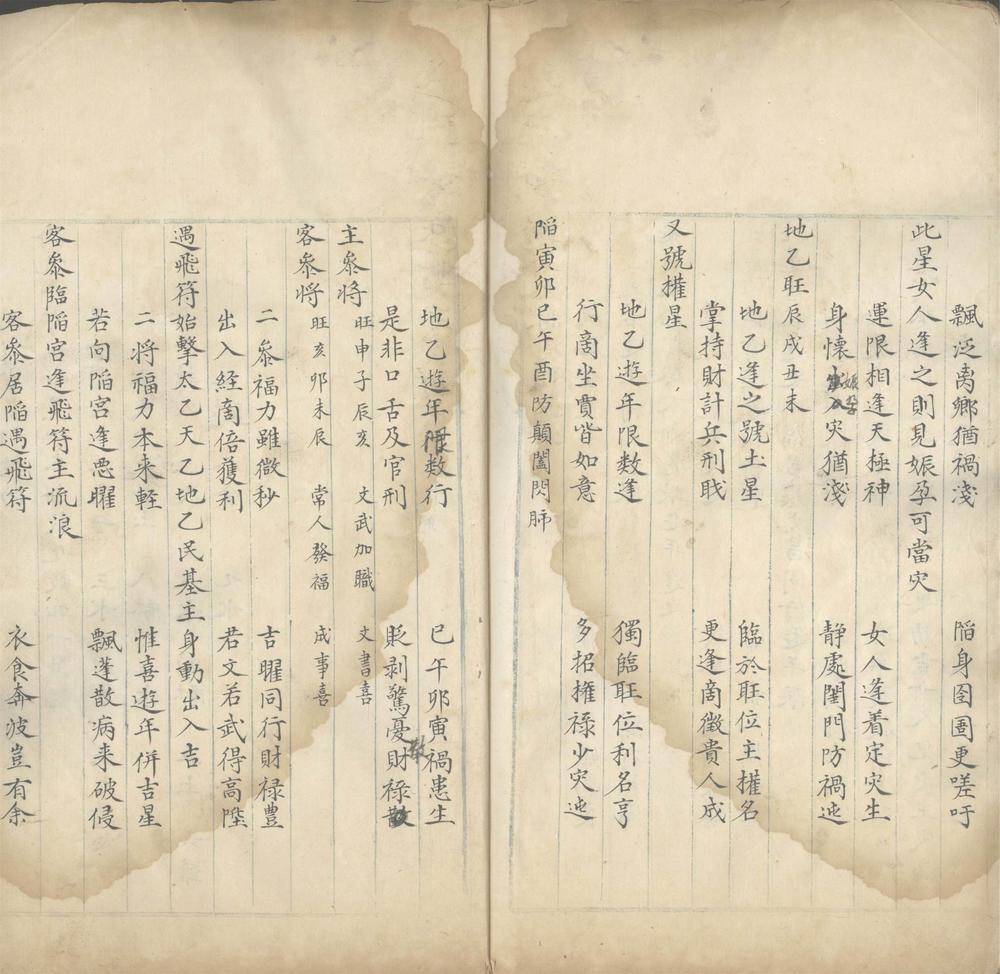 飄泛离鄉猶禍淺 陷身囹圄更嗟吁
此星女人逢之則見娠孕可當灾
運限相逢天極神 女人逢着定灾生
身懷娠孕灾猶淺 静處閨門防禍迍
地乙旺辰戌丑未
地乙逢之號土星 臨於旺位主權名
掌持財計兵刑戝 更逢啇徵貴人成
又號權星
地乙遊年限数逢 獨臨旺位利名亨
行啇坐賈皆如意 多招權禄少灾迍
陷寅卯巳午酉防顛闔閃肭
地乙遊年限数行 巳午卯寅禍患生
是非口舌及官刑 貶剥驚憂財禄散
主叅将 旺申子辰亥 文武加職 文書喜
客叅将 旺亥卯未辰 常人發福 成事喜
二叅福力雖微秒 吉曜同行財禄豊
出入経啇倍獲利 若文若武得高陞
遇飛符始擊太乙天乙地乙民基主身動出入吉
二将福力本来輕 惟喜遊年併吉星
若向陷宫逢悪曜 飄蓬散病来破侵
客叅臨陷宫逢飛符主流浪
客叅居陷遇飛符 衣食奔波豈有余